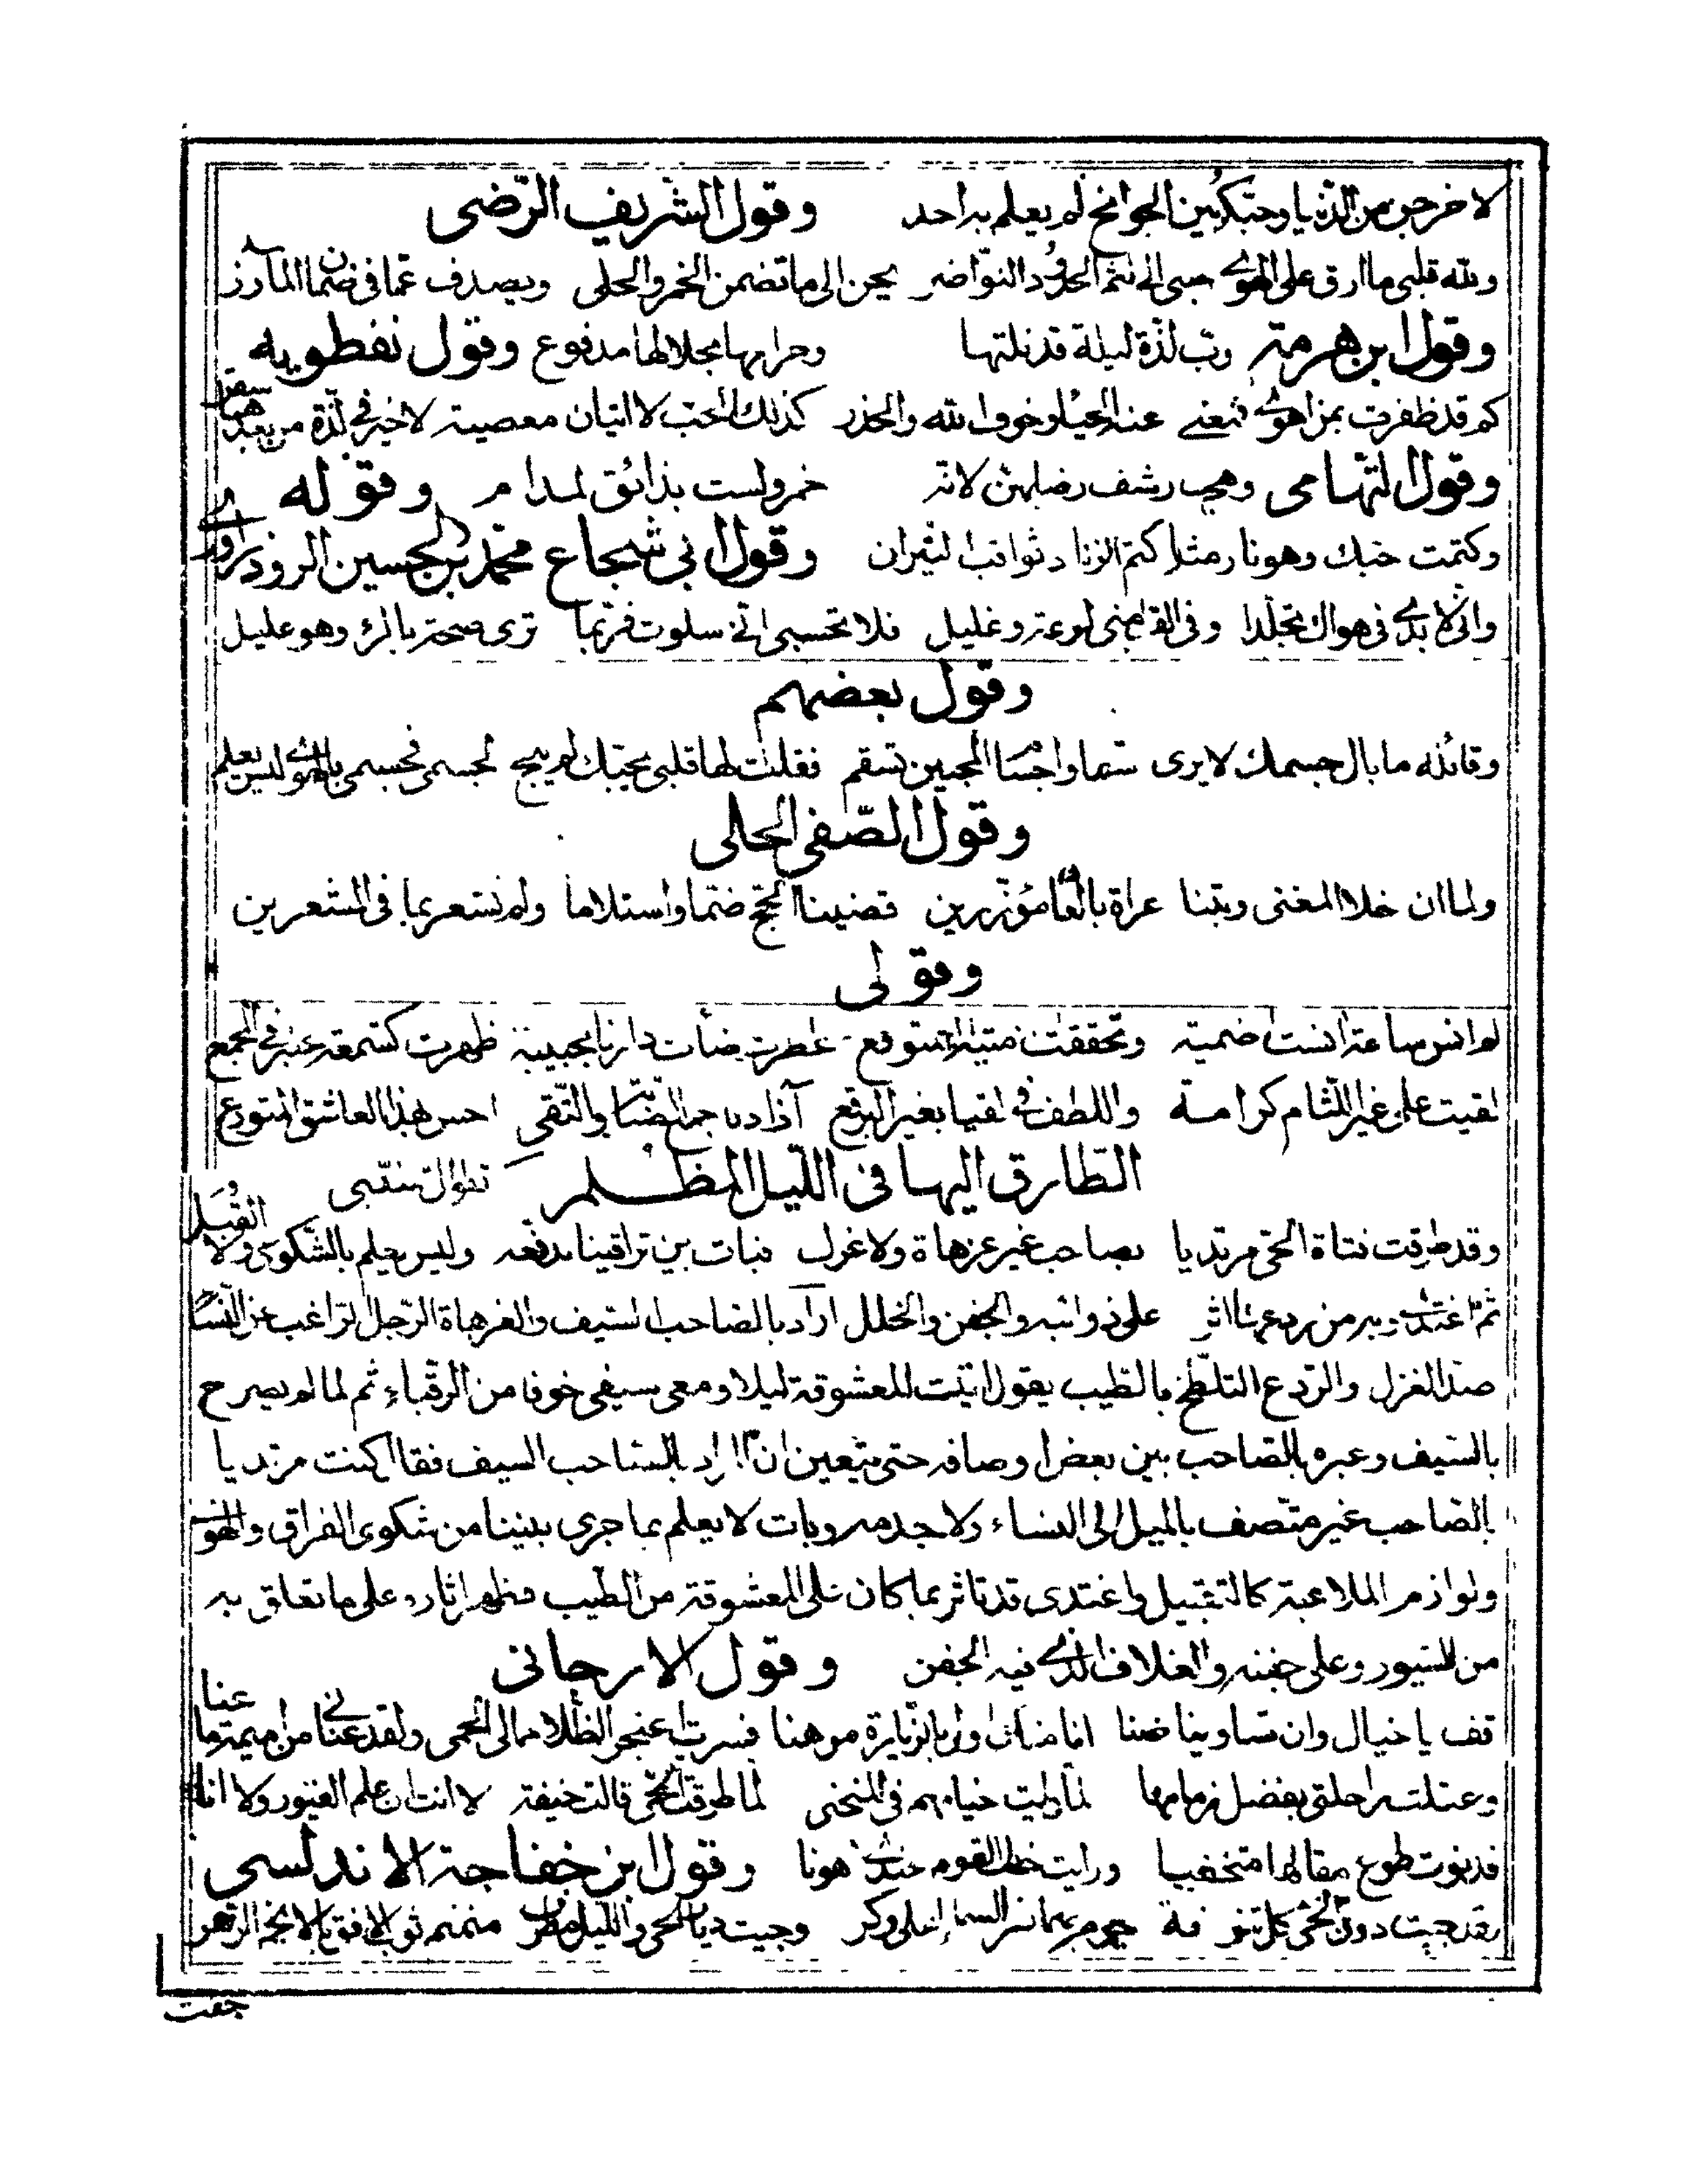 لاخرجن من الدنيا وحبكم بين الجوانح لم يعلم به احد وقول الشريف الرضى
ولله قلبى ما ارق على الهوى واصبى الى لثم الخدود النواضر يحن الى ما تضمن الخمر والحلى ويصدف عما فى ضمان المآزر
وقول ابن هرمة ورب لذة ليلة قد نلتها وحرامها بحلالها مدفوع وقول نفطويه
كم قد ظفرت بمن اهوى فيمنعنى عنه الحياء وخوف الله والحذر كذلك الحب لا اتيان معصية لا خير فى لذة من بعدها سقر
وقول التهامى وهجرت رشف رضابهن لانه خمر ولست بذائق لمدام وقوله
وكتمت حبك وهو نار مثلما كتم الزناد ثواقب النيران وقول ابى شجاع محمد بن الحسين الروذراورى
وانى لابدى فى هواك تجلدا وفى القلب منى لوعة وغليل فلا تحسبى انى سلوت فربما ترى صحة بالمرء وهو عليل
وقول بعضهم
وقائلة ما بال جسمك لا يرى سقيما واجسام المحبين تسقم فقلت لها قلبى بحبك لم يبح لجسمى فجسمى بالهوى ليس يعلم
وقول الصفى الحلى
ولما ان خلا المغنى وبتنا عراة بالعفاف مؤزرين قضينا الحج ضما واستلاما ولم نشعر بما فى المشعرين
وقولى
لم انس ساعة انست اضمية وتحققت منيتوقع عطرت دارنا بحبيبة ظهرت كشمعة عنبر فى المجمع
لقيت على غير اللثام كرامة واللطف فى لقيا بغير البرقع آزاد والتقى احسن هذا العاشق المتورع
الطارق اليها فى الليل المظلم نحو قول المتنبى
وقد طرقت فتاة الحى مرتديا بصاحب غير عزهاة ولا غزل فبات بين تراقينا ندفعه وليس يعلم بالشكوى ولا القبل
ثم اغتدى وبه من ردعها اثر على ذوائبه والجفن والخلل اراد بالصاحب السيف والعزهاة الرجل الراغب عن النساء
ضد الغزل والردع التلطخ بالطيب يقول اتيت المعشوقة ليلا ومعى سيفى خوفا من الرقباء ثم لما لم يصرح
بالسيف وعبره بالصاحب بين بعض اوصافه حتى يتعين ان المراد بالصاحب السيف فقال كنت مرتديا
بالصاحب غير متصف بالميل الى النساء ولا جده وبات لا يعلم بما جرى بيننا من شكوى الفراق والهوى
ولوازم الملاعبة كالتقبيل واغتدى قد تاثر بما كان على المعشوقة من الطيب فظهر اثاره على ما تعلق به
من السيور وعلى جفنه والغلاف الذى فيه الجفن وقول الارجانى
قف يا خيال وان تساوينا ضنا انا منك اولى بالزيارة موهنا فسريت اعنجر الظلام الى الحمى ولقد عنانى من اميمة ما عنا
وعقلت راحلتى بفضل زمامها لما رايت خيامهم فى المنحنى لما طرقت الحى قالت خيفة لا انت ان علم الغيور ولا انا
فدنوت طوع مقالها متخفيا ورايت خطب القوم عندى هونا وقول ابن خفاجة الاندلسى
لقد جبت دون الحى كل تنوفة يحوم بها نسر السماء على وكر وجبت ديار الحى والليل مطرق منمنم ثوب الافق بالانجم الزهر
جفت